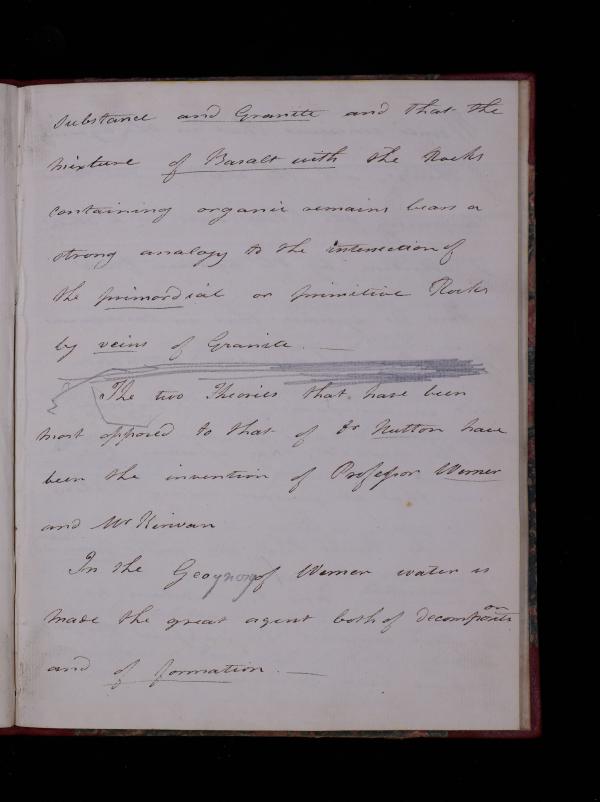 substance and Granite and that the
mixture of Basalt with the Rocks
containing organic remains bears a
strong analogy to the intersection of
the primordial or primitive Rocks
by veins of Granite. —
The two Theories that have been
most opposed to that of Dr Hutton have
been the invention of Professor Werner
and Mr Kirwan
In the Geognosy of Werner water is
made the great agent both of decomposition
and of formation. —